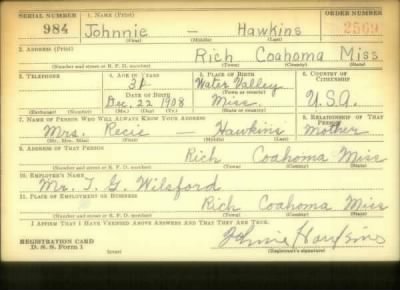 SERIAL NUMBER 1. NAME (Print) ORDER NUMBER
984 Johnnie — Hawkins 2569
(First) (Middle) (Last)
2. ADDRESS (Print)
Rich Coahoma Miss
(Number and street or R. F. D. number) (Town) (County) (State)
3. TELEPHONE 4. AGE IN YEARS 5. PLACE OF BIRTH 6. COUNTRY OF CITIZENSHIP
Water Valley
(Town or county)
DATE OF BIRTH
Dec. 22 1908 Miss. U.S.A.
(Exchange) (Number) (Mo.) (Day) (Yr.) (State or country)
7. NAME OF PERSON WHO WILL ALWAYS KNOW YOUR ADDRESS 8. RELATIONSHIP OF THAT PERSON
Mrs. Recie — Hawkins Mother
(Mr., Mrs., Miss) (First) (Middle) (Last)
9. ADDRESS OF THAT PERSON
Rich Coahoma Miss
(Number and street or R. F. D. number) (Town) (County) (State)
10. EMPLOYER'S NAME
Mr. T. G. Wilsford
11. PLACE OF EMPLOYMENT OR BUSINESS
Rich Coahoma Miss
(Number and street or R. F. D. number) (Town) (County) (State)
I AFFIRM THAT I HAVE VERIFIED ABOVE ANSWERS AND THAT THEY ARE TRUE.
REGISTRATION CARD
D. S. S. Form 1
(over) Johnie Hawkins
(Registrant's signature)